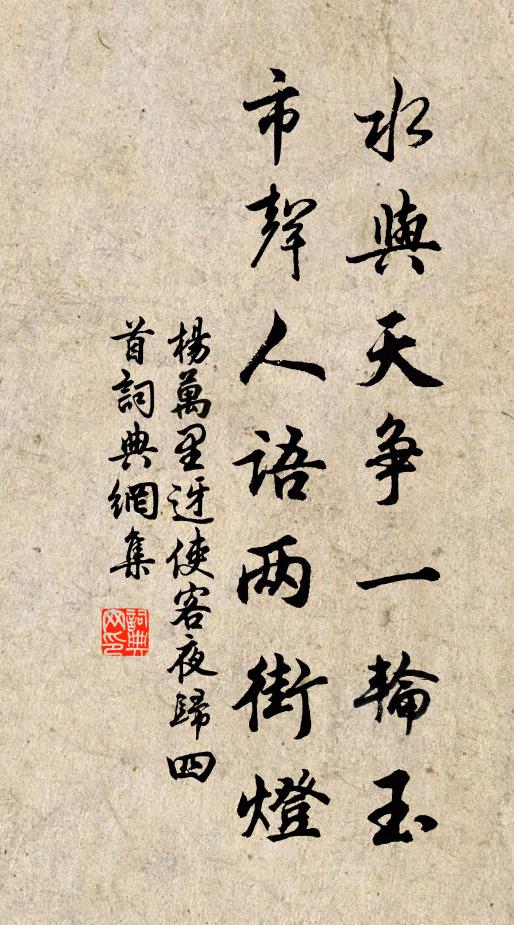 水與天争一輪玉
市聲人語两街燈
楊萬里迓使客夜歸四
首詞典網集
詞典
网印